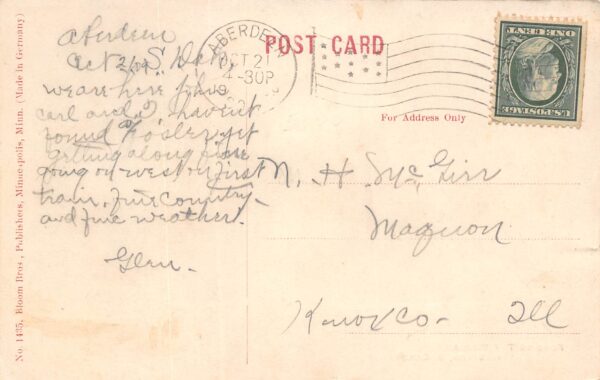 POST CARD
For Address Only
ABERDEEN
OCT 21
4-30P
U.S.POSTAGE
ONE CENT
No. 1435, Bloom Bros., Publishers, Minneapolis, Minn. (Made in Germany)
Aberdeen
Oct 21/09 S. Dak
we are here
carl and I havent
found Fosler yet
getting along fine
going on west on first
train, fine country
and fine weather.
Glen.
N. H. McGirr
Maquon
Knox co- Ill